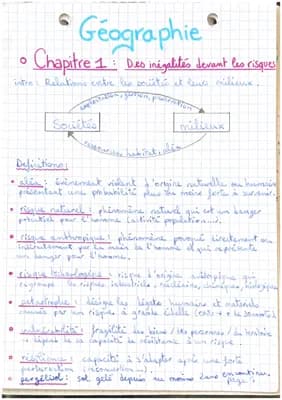 Géographie
Chapitre 1 : Des inégalités devant les risques
intro : Relations entre les sociétés et leurs milieux.
exploitation, gestion, protection
Sociétés milieux
ressources, habitat, aléa
Définitions :
aléa : évènement violent d'origine naturelle ou humaine
présentant une probabilité plus ou moins forte à survenir.
risque naturel : phénomène naturel qui est un danger
potentiel pour l'homme (activité population...).
risque anthropique : phénomène provoqué directement ou
indirectement par la main de l'homme et qui représente
un danger pour l'homme.
risque technologique : risque d'origine anthropique qui
regroupe les risques industriels, nucléaires, chimiques, biologiques
catastrophe : désigne les dégâts humains et matériels
causés par un risque à grande échelle
vulnérabilité : fragilité des biens / des personnes / du territoire
dépend de sa capacité de résistance à un risque.
résilience : capacité à s'adapter après une forte
perturbation (reconstruction...).
pergélisol : sol gelé depuis au moins 2 ans
page